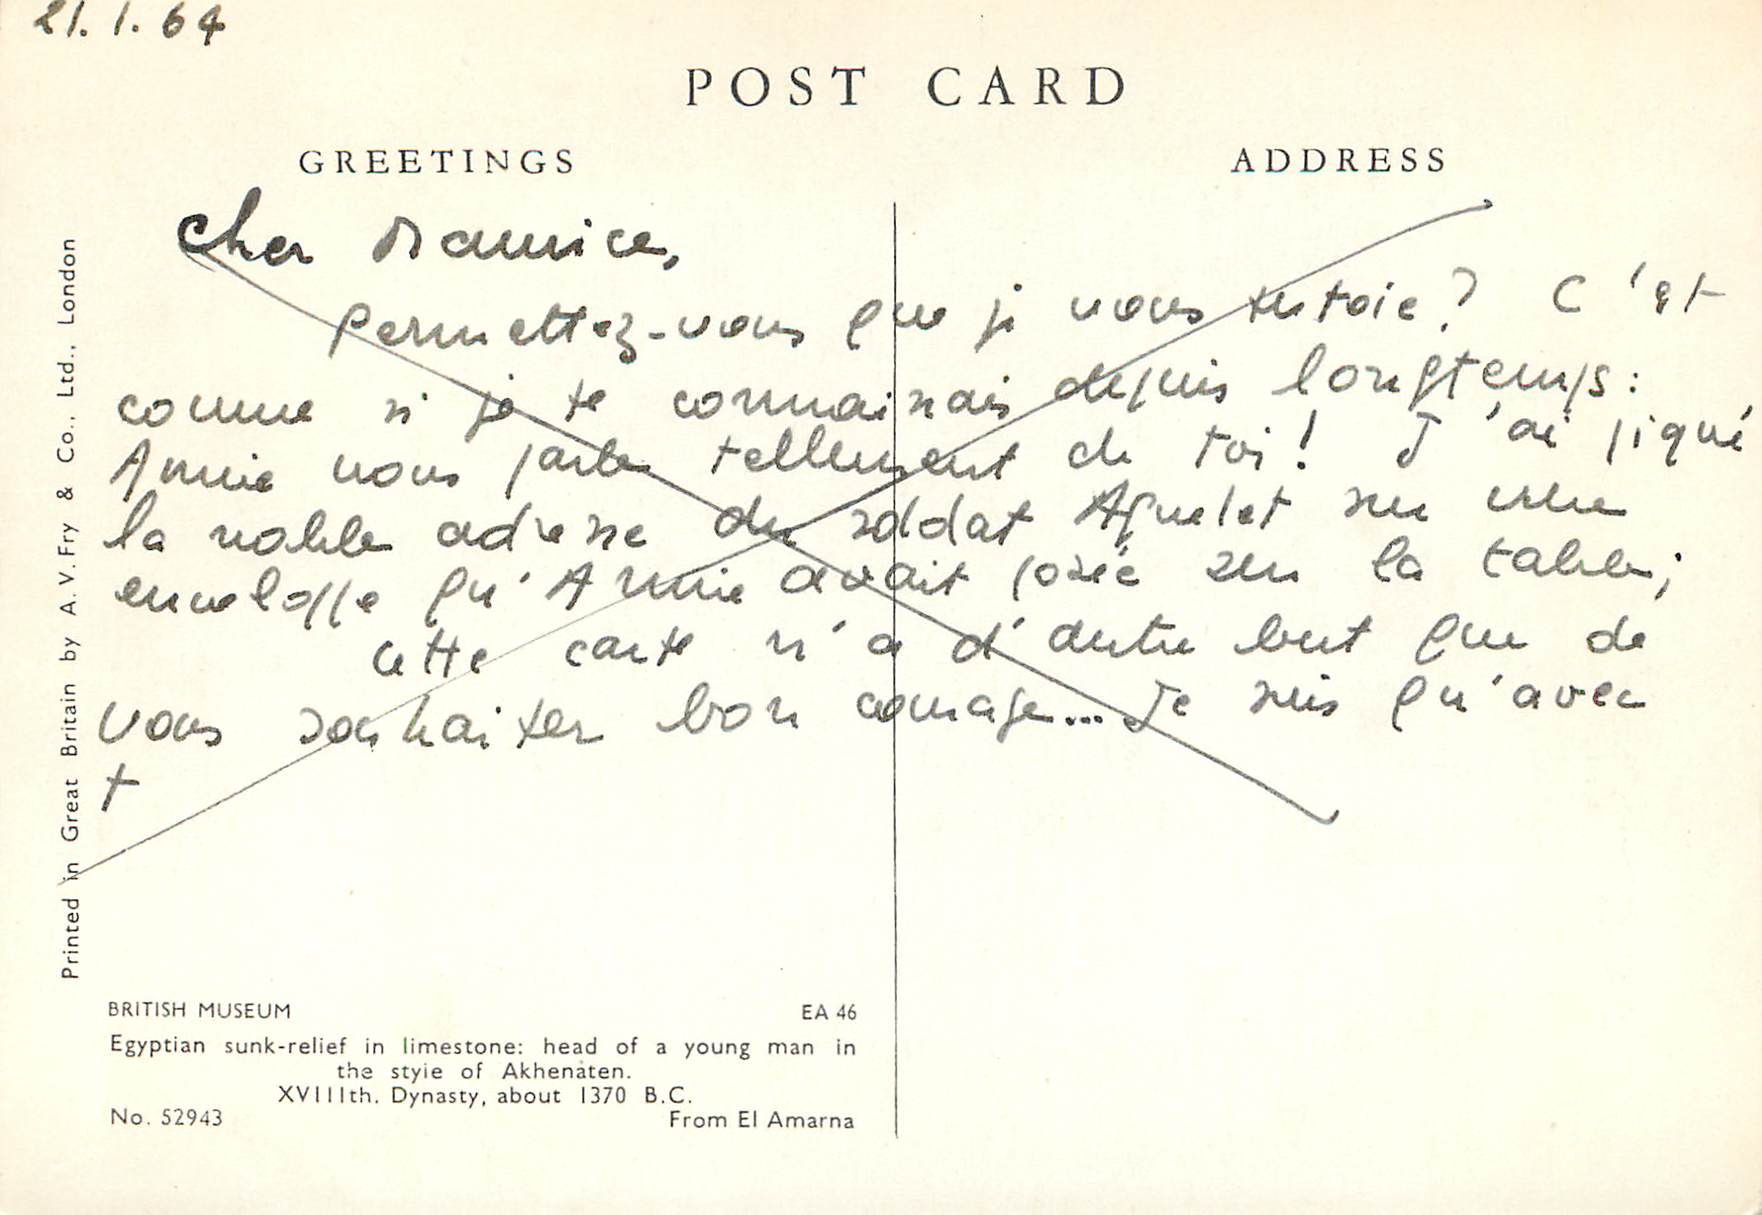 21.1.64
POST CARD
GREETINGS
ADDRESS
Cher Maurice,
Permettez-vous que je vous tutoie? C'est
comme si je te connaissais depuis longtemps:
Annie nous parle tellement de toi! J'ai piqué
la noble adresse du soldat Aguelet sur une
enveloppe qu'Annie avait posée sur la table;
cette carte n'a d'autre but que de
vous souhaiter bon courage... Je sais qu'avec
t
Printed in Great Britain by A. V. Fry & Co., Ltd., London
BRITISH MUSEUM EA 46
Egyptian sunk-relief in limestone: head of a young man in
the style of Akhenaten.
XVIIIth. Dynasty, about 1370 B.C.
No. 52943 From El Amarna